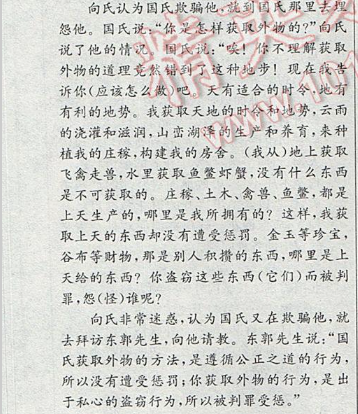 向氏认为国氏欺骗他，就到国氏那里去埋
怨他。国氏说：“你是怎样获取外物的？”向氏
说了他的情况。国氏说：“唉！你不理解获取
外物的道理竟然错到了这种地步！现在我告
诉你（应该怎么做）吧。天有适合的时令，地有
有利的地势。我获取天地的时令和地势，云雨
的浇灌和滋润，山峦湖泽的生产和养育，来种
植我的庄稼，构建我的房舍。（我从）地上获取
飞禽走兽，水里获取鱼鳖虾蟹，没有什么东西
是不可获取的。庄稼、土木、禽兽、鱼鳖，都是
上天生产的，哪里是我所拥有的？这样，我获
取上天的东西却没有遭受惩罚。金玉等珍宝，
谷布等财物，那是别人积攒的东西，哪里是上
天给的东西？你盗窃这些东西（它们）而被判
罪，怨（怪）谁呢？
向氏非常迷惑，认为国氏又在欺骗他，就
去拜访东郭先生，向他请教。东郭先生说：“国
氏获取外物的方法，是遵循公正之道的行为，
所以没有遭受惩罚；你获取外物的行为，是出
于私心的盗窃行为，所以被判罪受惩。”